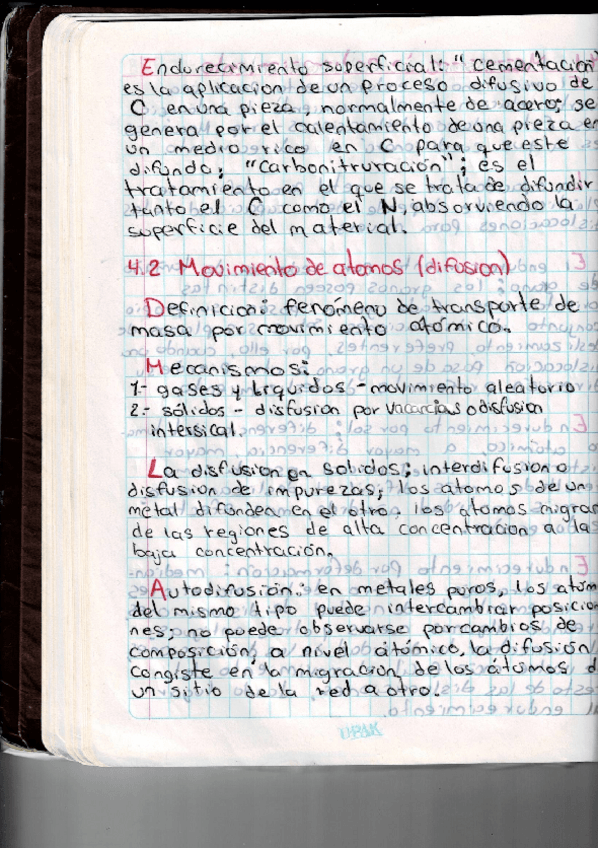 Endurecimiento superficial: "cementación"
es la aplicacion de un proceso difusivo de
C en una pieza, normalmente de acero; se
genera por el calentamiento de una pieza en
un medio rico en C para que este
difunda; "Carbonitruración"; es el
tratamiento en el que se trata de difundir
tanto el C como el N, absorviendo la
superficie del material.
4.2 Movimiento de atomos (difusion)
Definicion: fenómeno de transporte de
masa por movimiento atómico.
Mecanismos:
1.- gases y liquidos - movimiento aleatorio
2.- sólidos - disfusion por vacancias o disfusion
intersical.
La disfusion en solidos; interdifusion o
disfusion de impurezas; los atomos de un
metal difunden en el otro, los átomos migran
de las regiones de alta concentracion a la
baja concentración.
Autodifusión: en metales puros, los atom
del mismo tipo puede intercambiar posicio
nes, no puede observarse por cambios de
composición, a nivel átómico, la difusión
consiste en la migracion de los átomos d
un sitio de la red a otro.